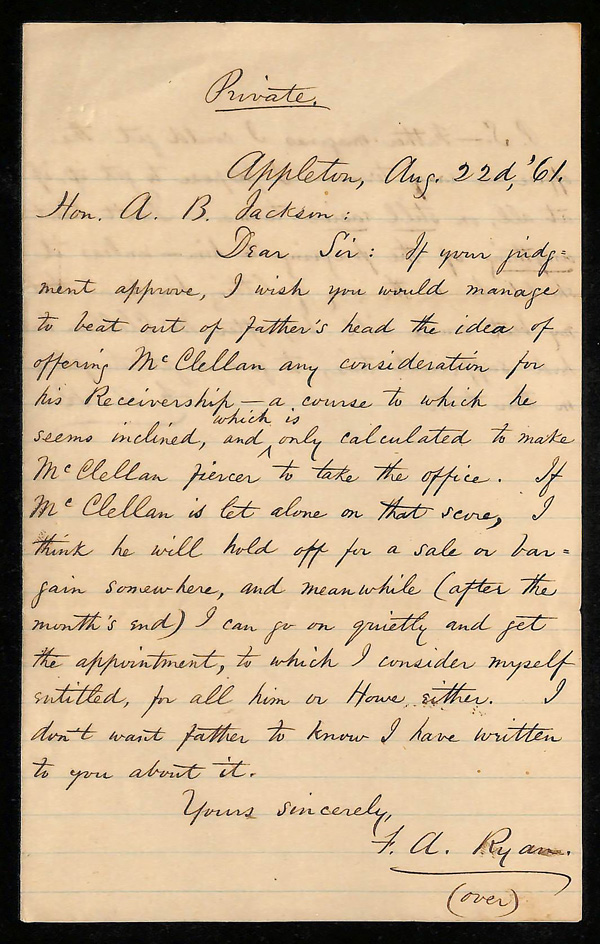 Private.
Appleton, Aug. 22d, '61.
Hon. A. B. Jackson:
Dear Sir: If your judg=
ment approve, I wish you would manage
to beat out of father's head the idea of
offering McClellan any consideration for
his Receivership — a course to which he
which is
seems inclined, and ^ only calculated to make
McClellan fiercer to take the office. If
McClellan is let alone on that score, I
think he will hold off for a sale or bar=
gain somewhere, and meanwhile (after the
month's end) I can go on quietly and get
the appointment, to which I consider myself
entitled, for all him or Howe either. I
don't want father to know I have written
to you about it.
Yours sincerely,
F. A. Ryan.
(over)